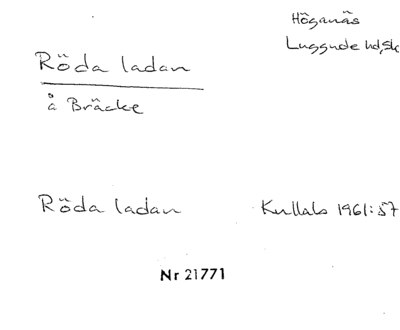 Höganäs
Luggude hd, Sk
Röda ladan
å Bräcke
Röda ladan Kullabo 1961:57
Nr 21771